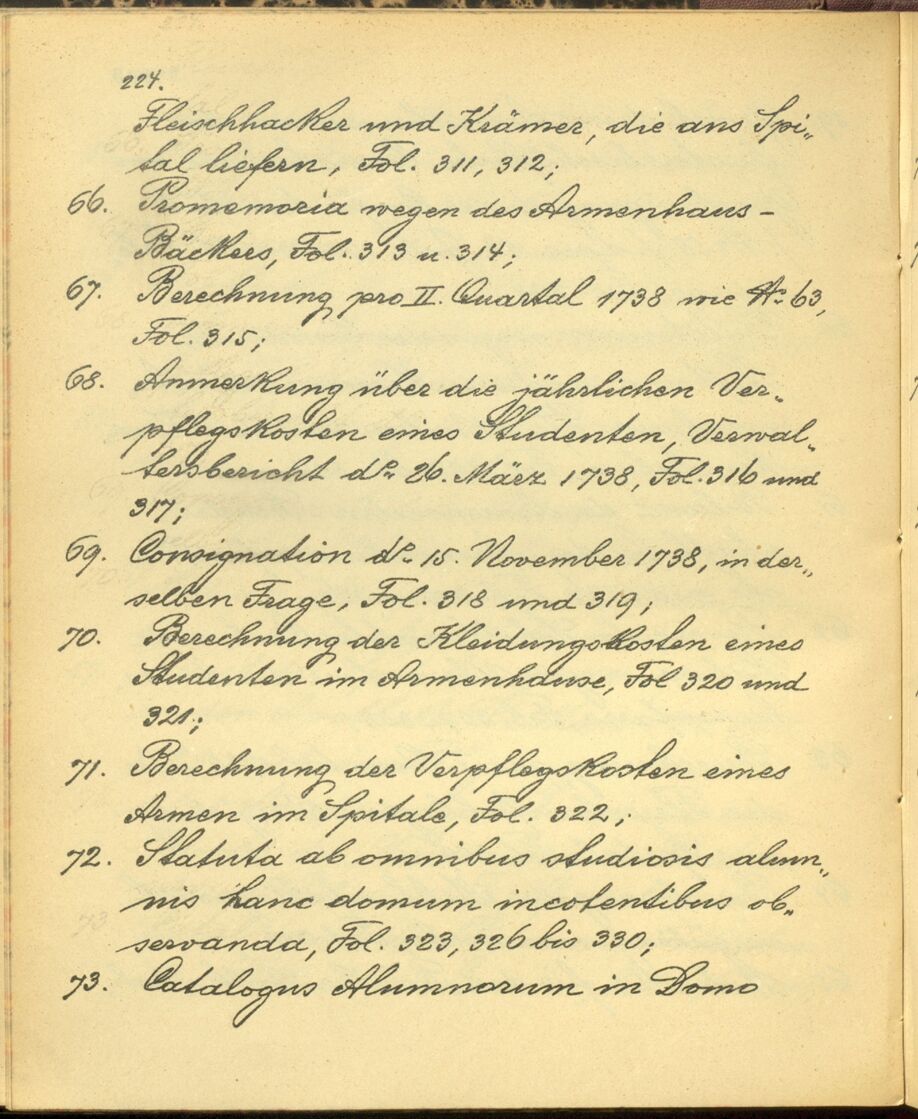 224.
Fleischhacker und Krämer, die ans Spi„
tal liefern, Fol. 311, 312;
66. Promemoria wegen des Armenhaus-
Bäckers, Fol. 313 u. 314;
67. Berechnung pro II. Quartal 1738 wie No. 63,
Fol. 315;
68. Anmerkung über die jährlichen Ver„
pflegskosten eines Studenten, Verwal„
tersbericht do. 26. März 1738, Fol. 316 und
317;
69. Consignation do. 15. November 1738, in der„
selben Frage, Fol. 318 und 319;
70. Berechnung der Kleidungskosten eines
Studenten im Armenhause, Fol 320 und
321.;
71. Berechnung der Verpflegskosten eines
Armen im Spitale, Fol. 322;
72. Statuta ab omnibus studiosis alum„
nis hanc domum incolentibus ob„
servanda, Fol. 323, 326 bis 330;
73. Catalogus Alumnorum in Domo